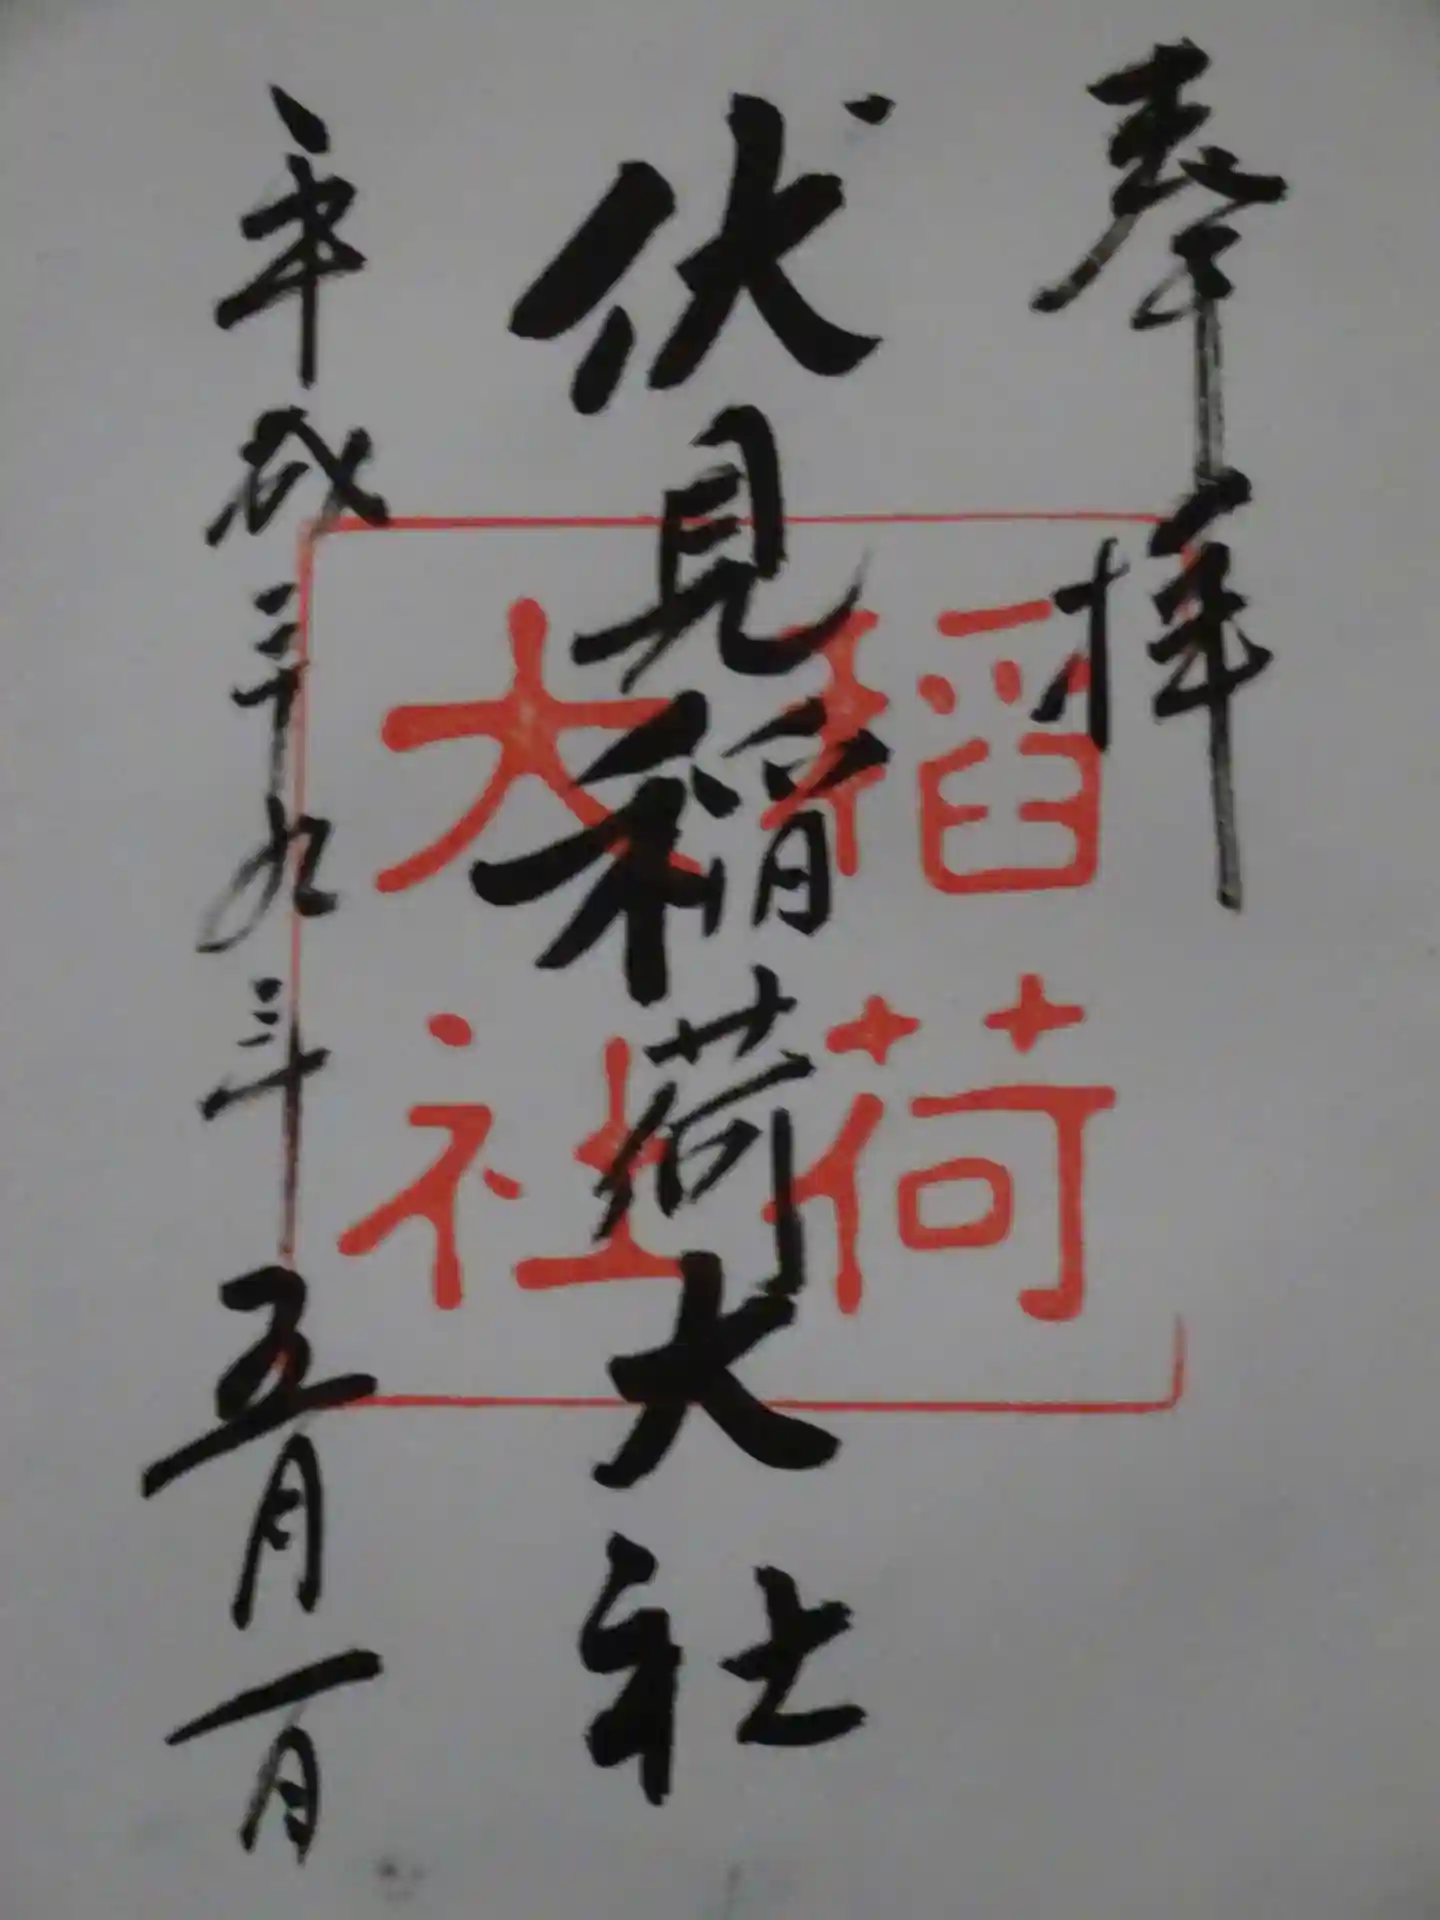 奉拝
伏見稲荷大社
平成二十九年五月一日
稲荷
大社